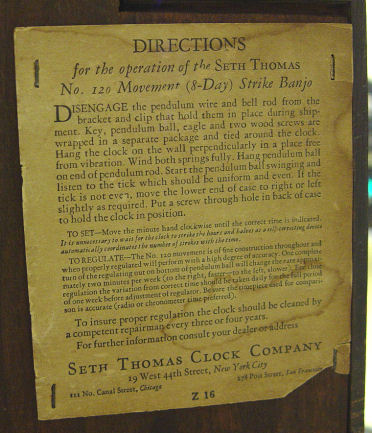 DIRECTIONS
for the operation of the SETH THOMAS
No. 120 Movement (8-Day) Strike Banjo
DISENGAGE the pendulum wire and bell rod from the
bracket and clip that hold them in place during ship-
ment. Key, pendulum ball, eagle and two wood screws are
wrapped in a separate package and tied around the clock.
Hang the clock on the wall perpendicularly in a place free
from vibration. Wind both springs fully. Hang pendulum ball
on end of pendulum rod. Start the pendulum ball swinging and
listen to the tick which should be uniform and even. If the
tick is not even, move the lower end of case to right or left
slightly as required. Put a screw through hole in back of case
to hold the clock in position.
TO SET—Move the minute hand clockwise until the correct time is indicated.
It is unnecessary to wait for the clock to strike the hours and halves as a self-correcting device
automatically coordinates the number of strokes with the time.
TO REGULATE—The No. 120 movement is of fine construction throughout and
when properly regulated will perform with a high degree of accuracy. One complete
turn of the regulating nut on bottom of pendulum ball will change the rate approxi-
mately two minutes per week (to the right, faster—to the left, slower). To
regulation the variation from correct time should be taken daily for the full period
of one week before adjustment of regulator. Be sure the timepiece used for compari-
son is accurate (radio or chronometer time preferred).
To insure proper regulation the clock should be cleaned by
a competent repairman every three or four years.
For further information consult your dealer or address
SETH THOMAS CLOCK COMPANY
19 West 44th Street, New York City
222 No. Canal Street, Chicago
278 Post Street, San Francisco
Z 16